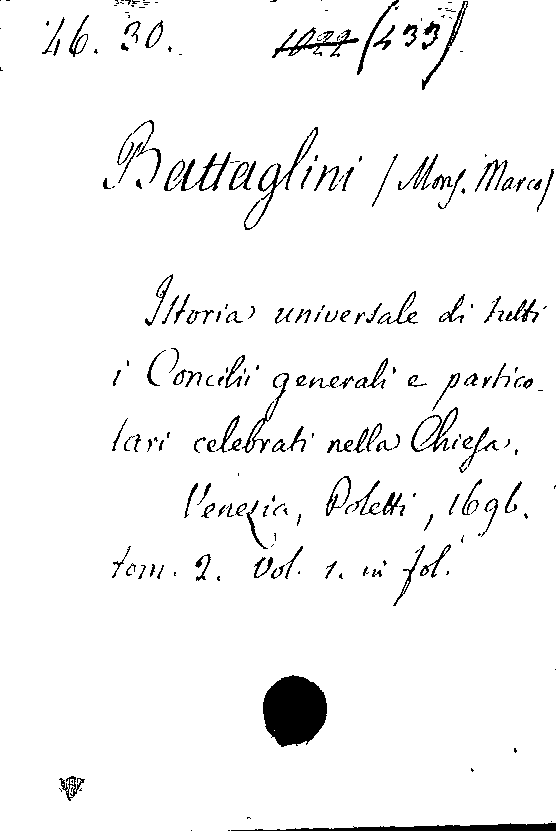 46. 30. 1022 (433)
Battaglini (Mons. Marco)
Istoria universale di tutti
i Concilii generali e partico-
lari celebrati nella Chiesa.
Venezia, Poletti, 1696.
tom. 2. Vol. 1. in fol.